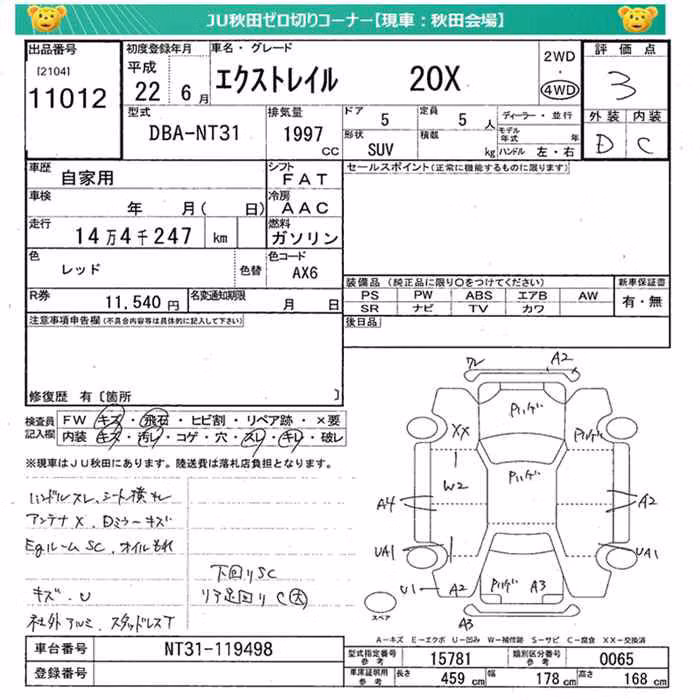 JU秋田ゼロ切りコーナー【現車：秋田会場】
出品番号
[2104]
11012
初度登録年月
平成
22年 6月
車名・グレード
エクストレイル 20X
2WD
・
4WD
評価点
3
外装 内装
D C
型式
DBA-NT31
排気量
1997
CC
ドア 5
定員 5 人
形状 SUV
積載 kg
ディーラー・並行
モデル年式 年
ハンドル 左・右
車歴 自家用
シフト FAT
車検 年 月( 日)
冷房 AAC
走行 14万4千247 km
燃料 ガソリン
色 レッド 色替
色コード AX6
R券 11,540 円
名変通知期限 月 日
セールスポイント(正常に機能するものに限ります)
装備品 (純正品に限り○をつけてください)
PS PW ABS エアB AW
SR ナビ TV カワ
新車保証書
有・無
後日品
注意事項申告欄(不具合内容等は具体的に記入して下さい)
修復歴 有〔箇所 〕
検査員記入欄
FW キズ・飛石・ヒビ割・リペア跡・×要
内装 キズ・汚レ・コゲ・穴・スレ・キレ・破レ
※現車はJU秋田にあります。陸送費は落札店負担となります。
ハンドルスレ、シート擦れ
アンテナX、Dミラーキズ
EgルームSC、オイルもれ
下回りSC
キズ・U
リア足回りC(大)
社外アルミ、スタッドレスT
ワレ A2
パハゲ
XX
パハゲ
パハゲ
W2
A4
A2
UA1
UA1
U1
A2
パハゲ
A3
A3
スペア
A−キズ E−エクボ U−凹み W−補修跡 S−サビ C−腐食 XX−交換済
車台番号 NT31-119498
登録番号
型式指定番号 参考 15781
類別区分番号 参考 0065
車床証明用 参考 長さ 459 cm 幅 178 cm 高さ 168 cm